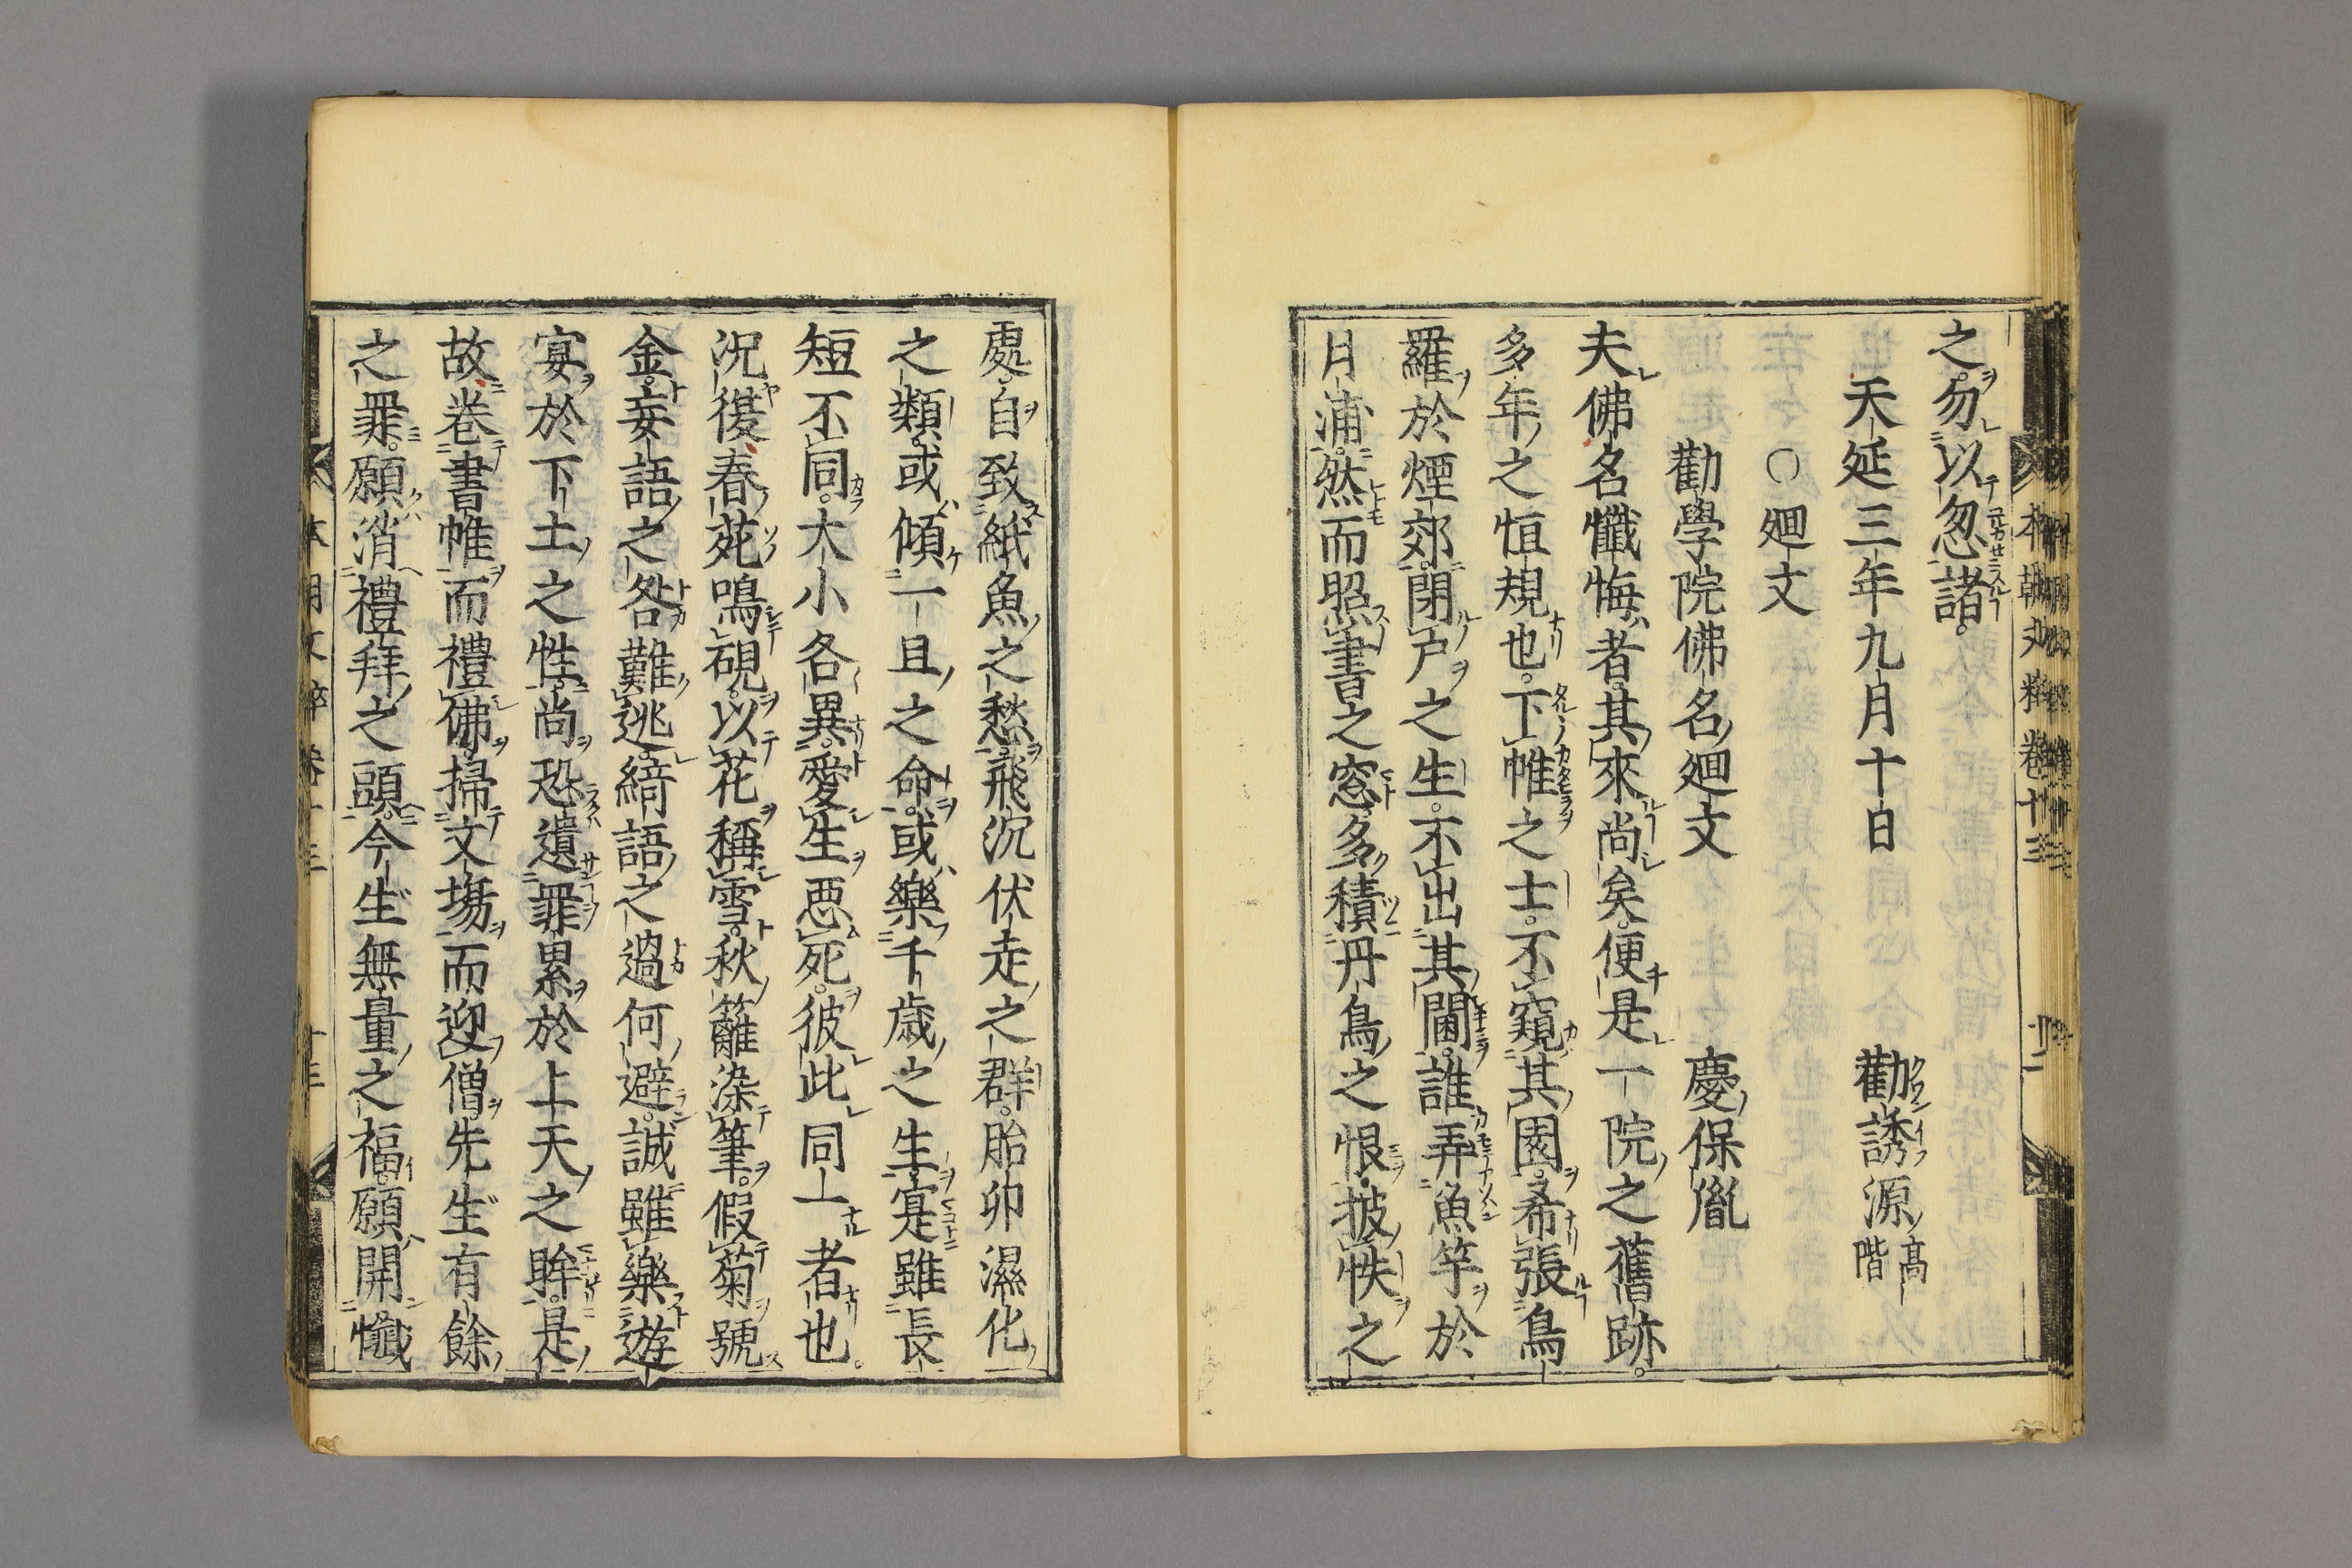 之勿以忽諸
天延三年九月十日 勸誘源高階
〇廻文
勸學院佛名廻文 慶保胤
夫佛名懺悔者其來尚矣便是一院之舊跡
多年之恒規也下帷之士不窺其園希張鳥
羅於煙郊閉戸之生不出其閫誰弄魚竿於
月浦然而照書之窓多積丹鳥之恨披帙之
處自致紙魚之愁飛沉伏走之群胎卵濕化
之類或傾一旦之命或樂千歳之生寔雖長
短不同大小各異愛生惡死彼此同上者也
況復春苑鳴硯以花稱雪秋籬染筆假菊號
金妄語之咎難逃綺語之過何避誠雖樂遊
宴於下土之性尚恐遺罪累於上天之眸是
故卷書帷而禮佛掃文場而迎僧先生有餘
之罪願消禮拜之頭今生無量之福願開懺
本朝文粹卷十三
本朝文粹卷十三 十三